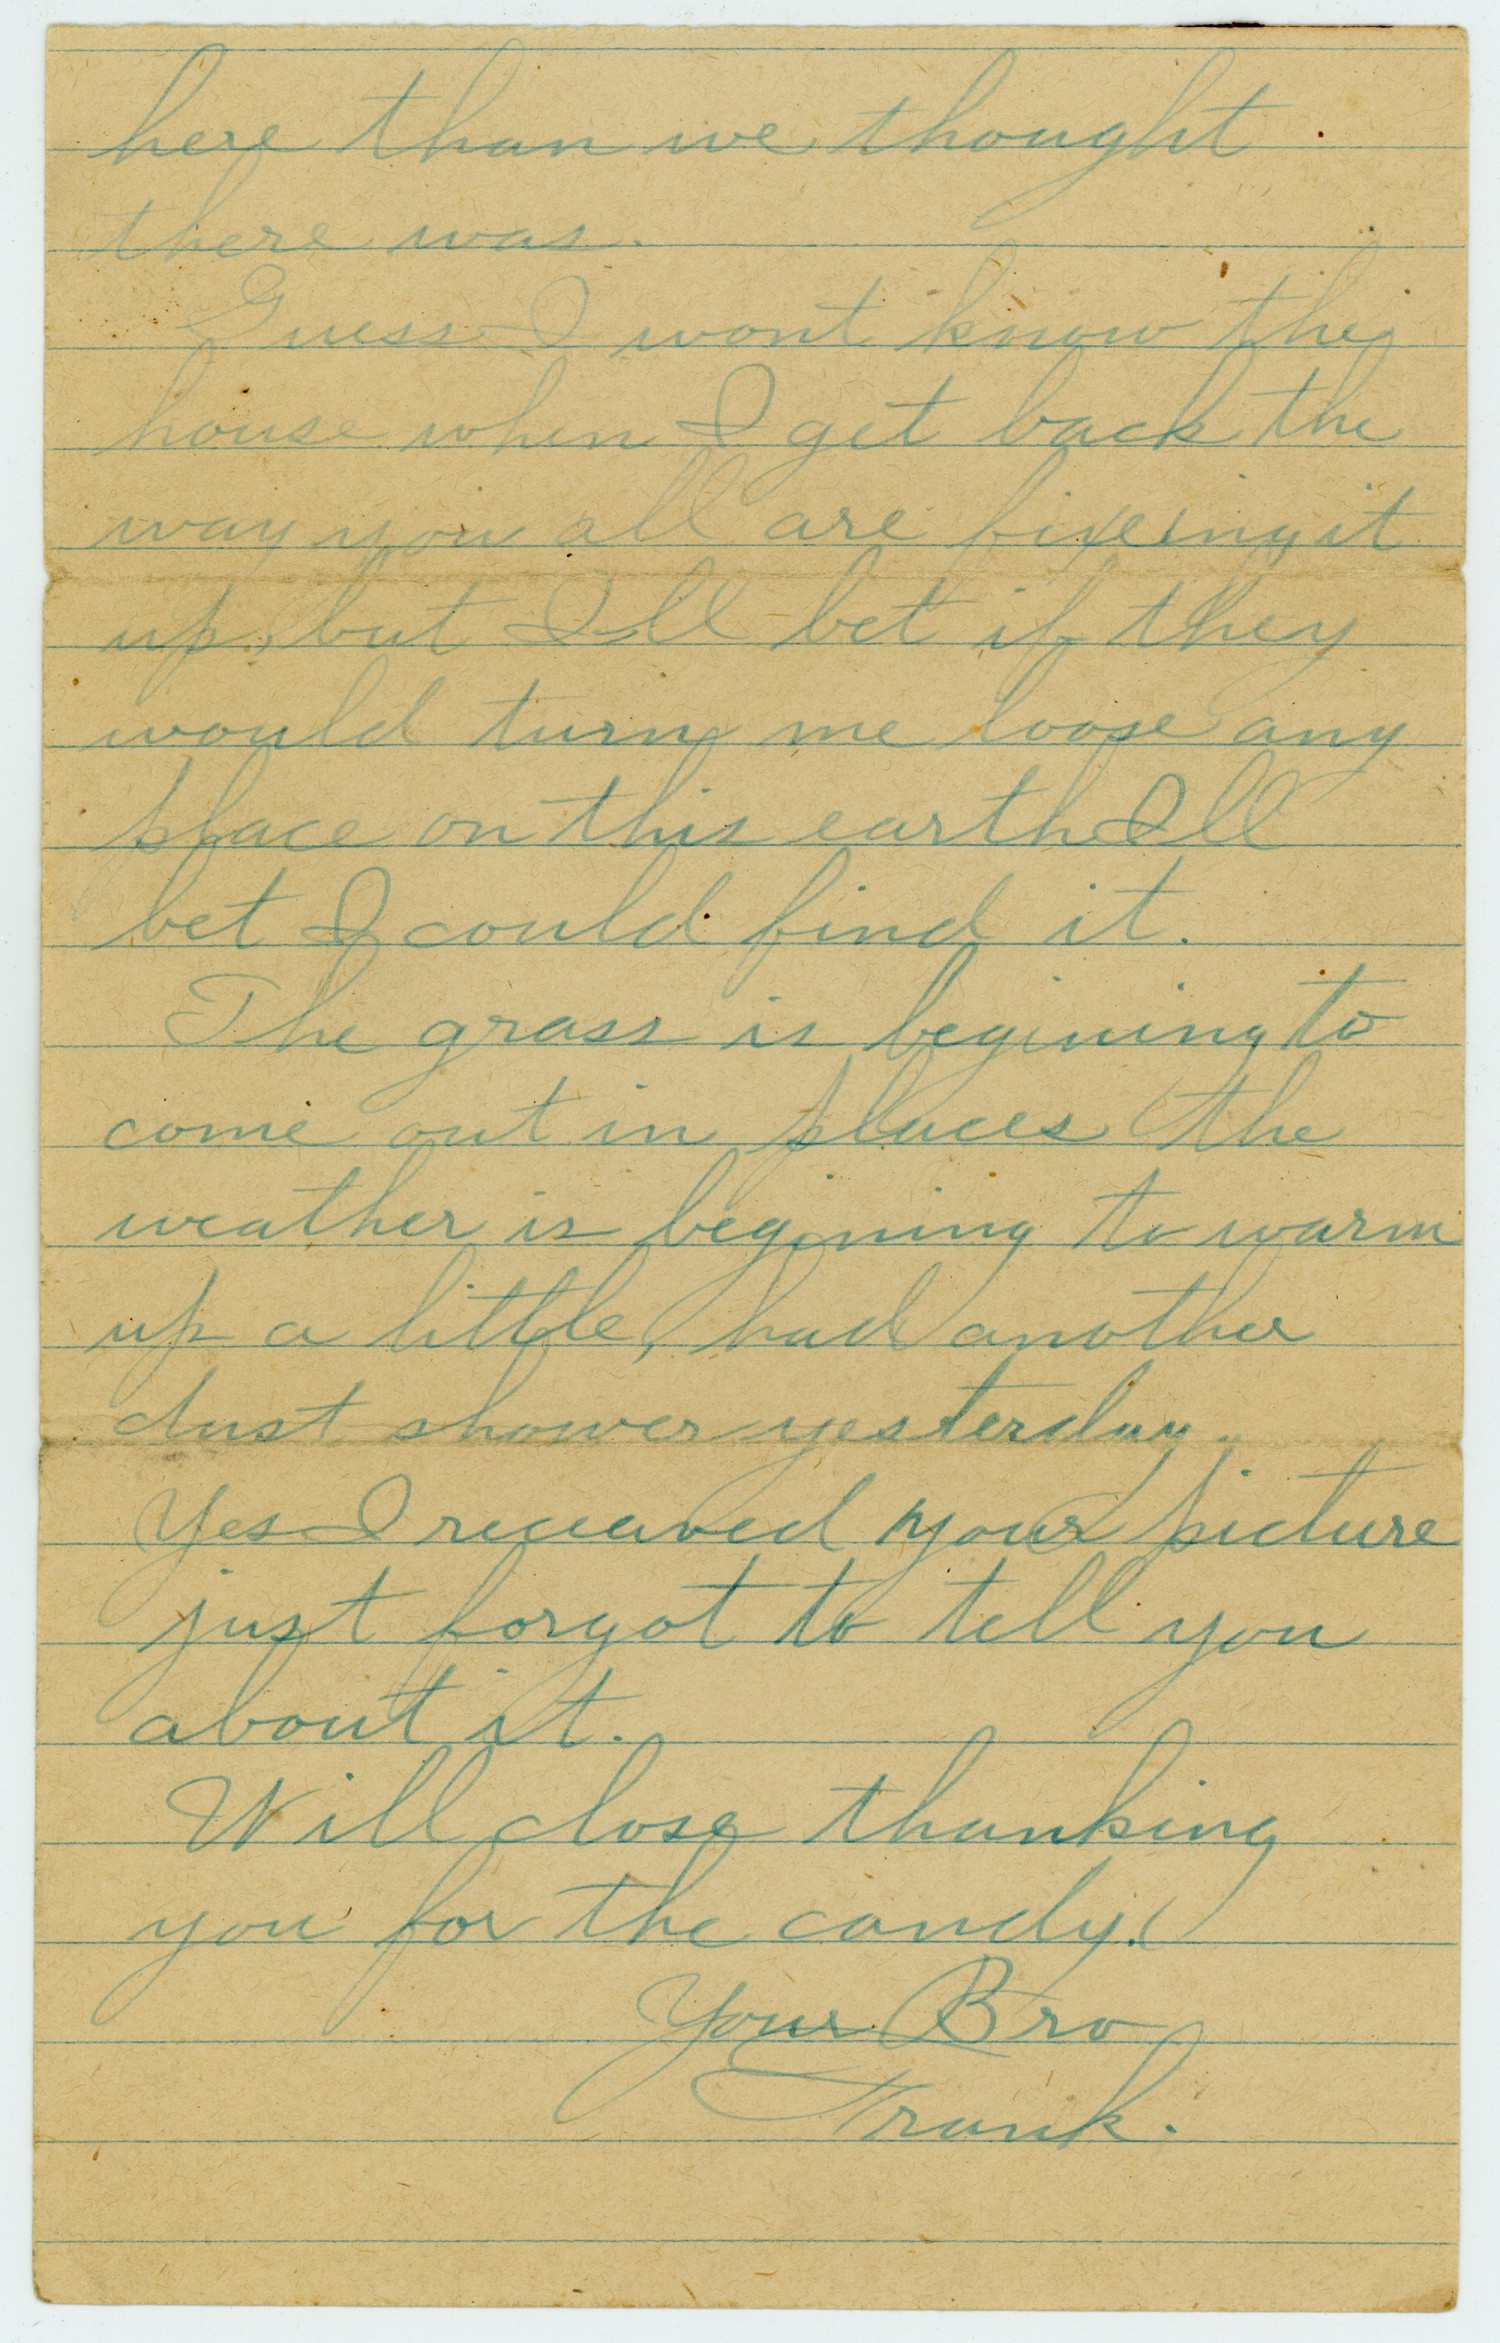 here than we thought
there was.
Guess I wont know the
house when I get back the
way you all are fixeing it
up, but Ill bet if they
would turn me loose any
place on this earth Ill
bet I could find it.
The grass is begining to
come out in places the
weather is begining to warm
up a little, had another
dust shower yesterday.
Yes I receaved your picture
just forgot to tell you
about it.
Will close thanking
you for the candy.
Your Bro
Frank.